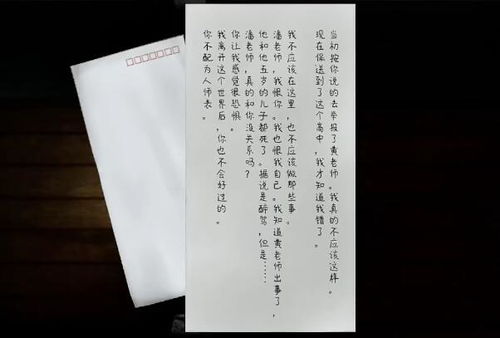 当初按你说的去举报了黄老师。我真的不应该这样。
现在保送到了这个高中，我才知道我错了。
我不应该在这里，也不应该做那些事。
潘老师，我恨你。我也恨我自己。我知道黄老师出事了，
他和他五岁的儿子都死了。据说是醉驾，但是……
潘老师，真的和你没关系吗？
你让我感觉很恐惧。
我离开这个世界后，你也不会好过的。
你不配为人师表。